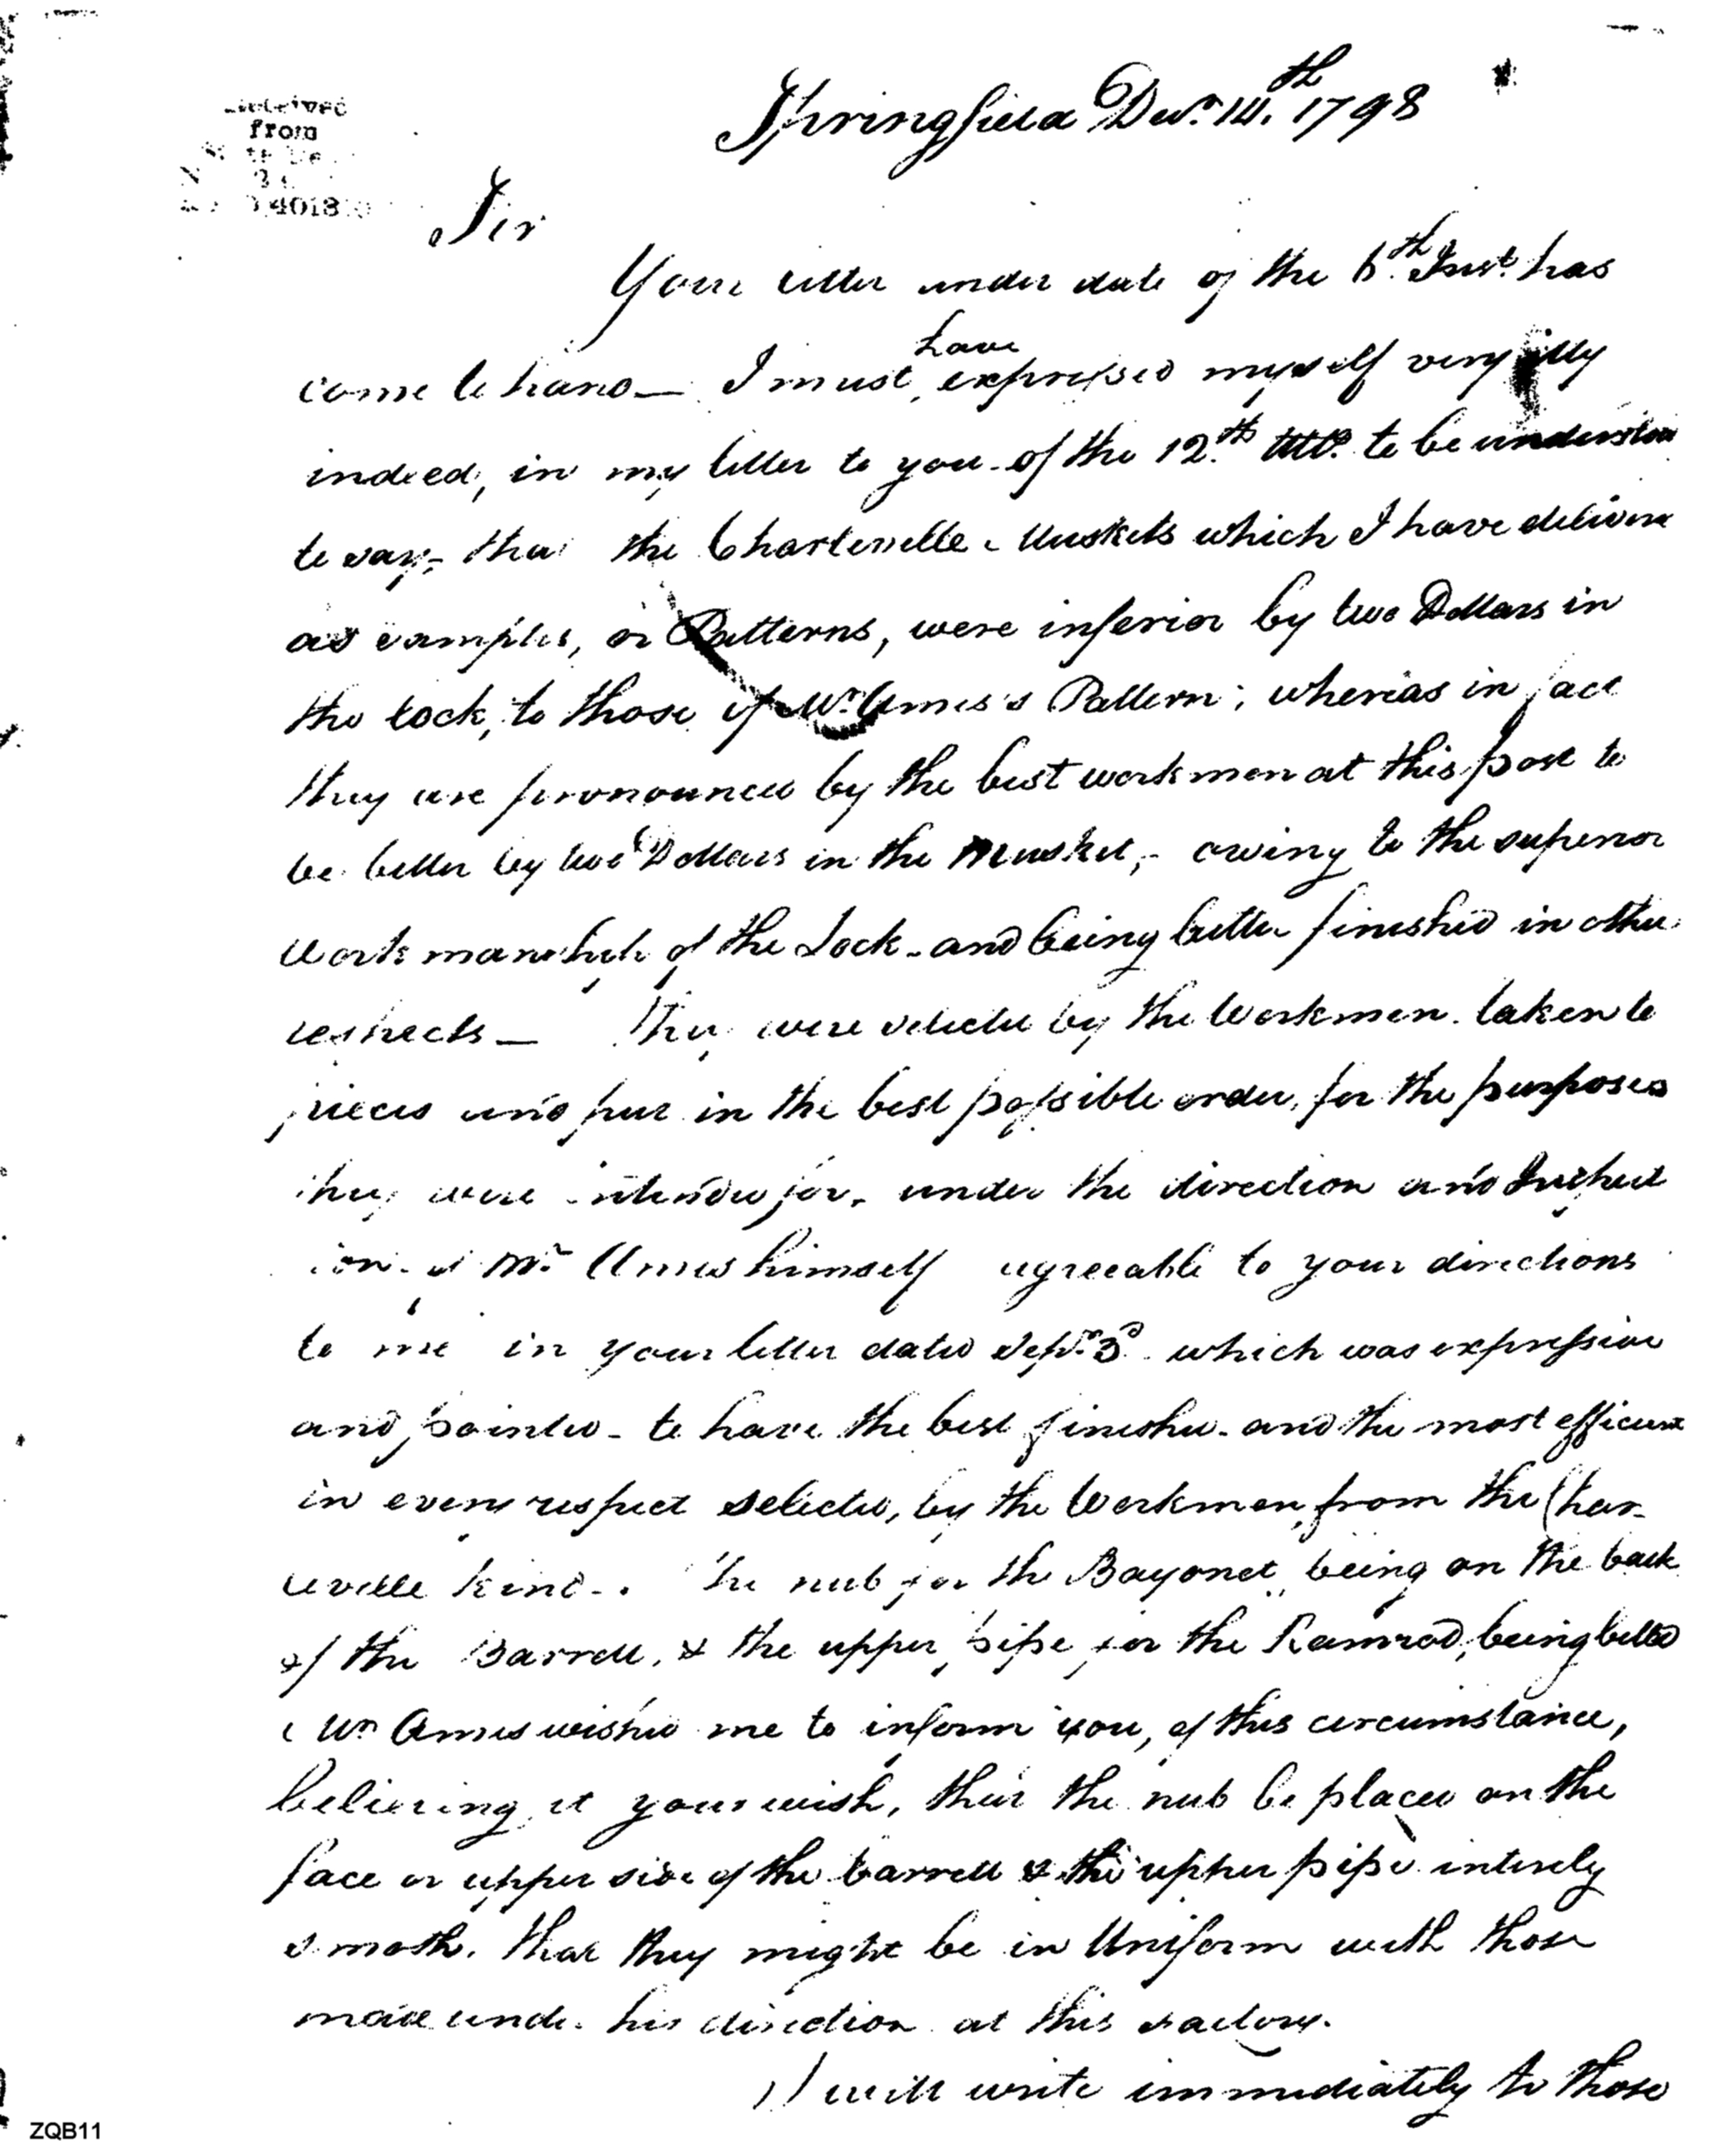 Received
from
Springfield Decr. 14th. 1798
Sir
Your letter under date of the 6th. Inst. has
have
come to hand — I must expressed myself very illy
indeed, in my letter to you of the 12th Ulto. to be understood
to say, that the Charlevelle Muskets which I have deliverd
as examples, or Patterns, were inferior by two Dollars in
the lock, to those of Mr. Ames's Pattern; whereas in fact
they are pronounced by the best workmen at this post to
be better by two Dollars in the Musket, - owing to the superior
workmanship of the Lock - and being better finished in other
respects — They were selected by the Workmen. taken to
pieces and put in the best possible order, for the purposes
they were intended for, under the direction and Inspect
ion of Mr. Ames himself agreeable to your directions
to me in your letter dated Sepr. 3d. which was expressive
and pointed - to have the best finished - and the most efficient
in every respect selected, by the Workmen, from the Char-
leville kind -. The nub for the Bayonet, being on the back
of the Barrell, & the upper pipe for the Ramrod, being belled
Mr Ames wished me to inform you, of this circumstance,
believing it your wish, that the nub be placed on the
face or upper side of the barrell & the upper pipe intirely
smoth. that they might be in Uniform with those
made under his direction at this Factory.
I will write immediately to those
ZQB11